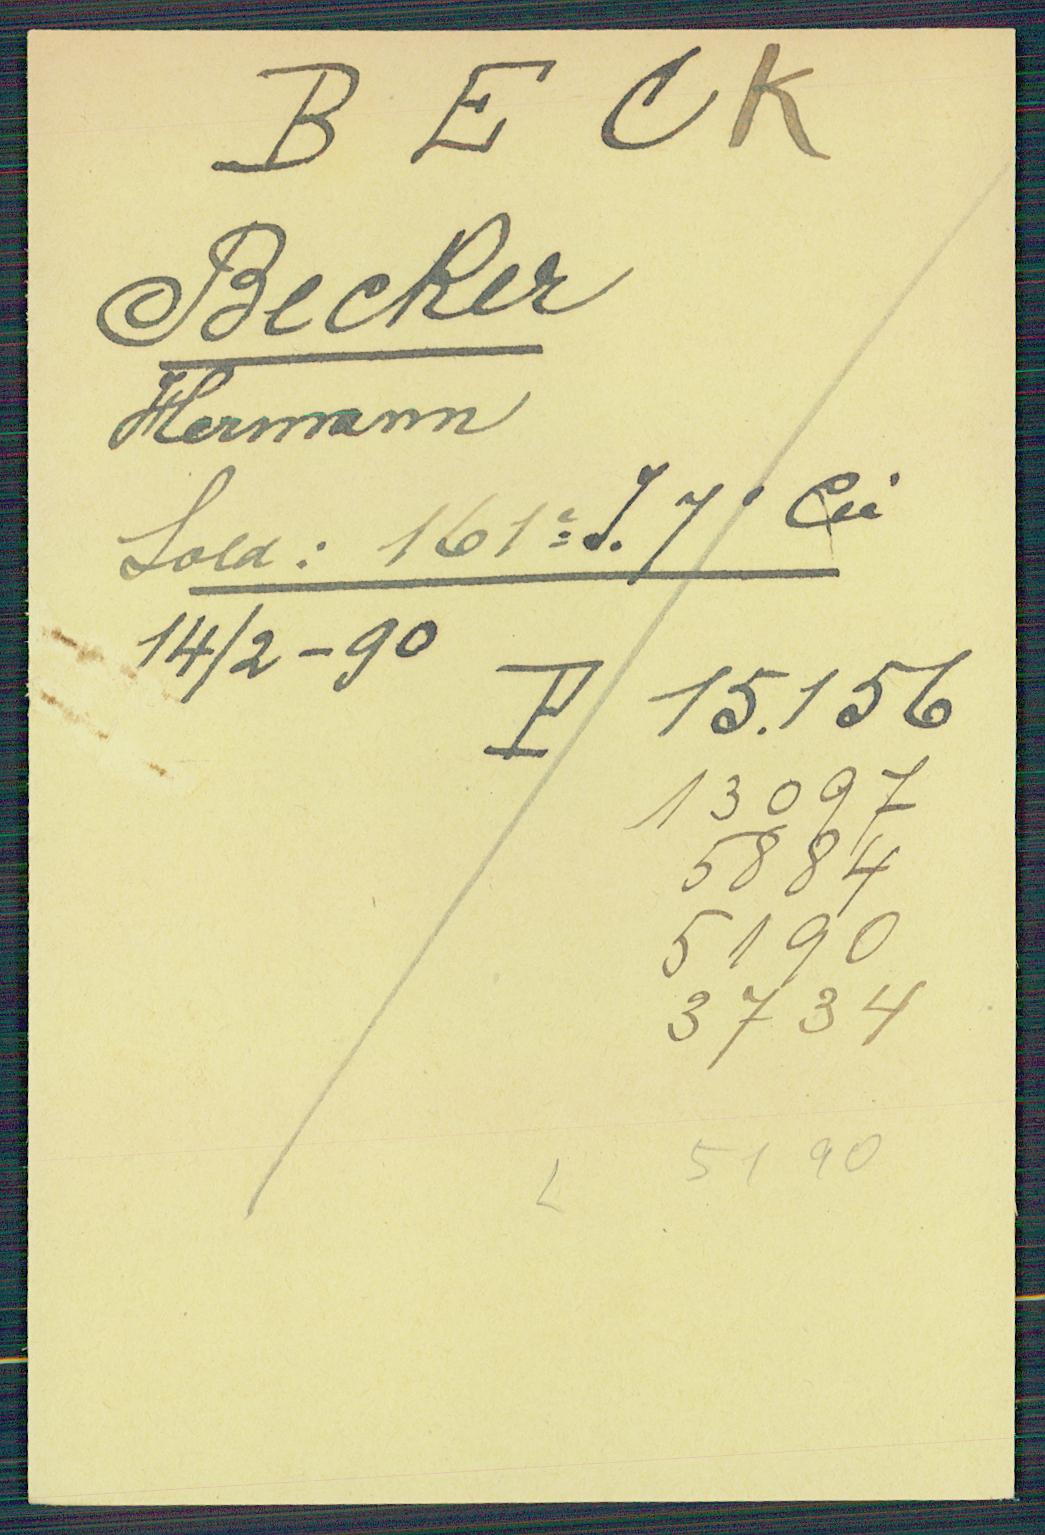 B E C K
Becker
Hermann
Sold: 161e J. 7. Cie
14/2-90
P 15.156
13097
5884
5190
3734
L 5190